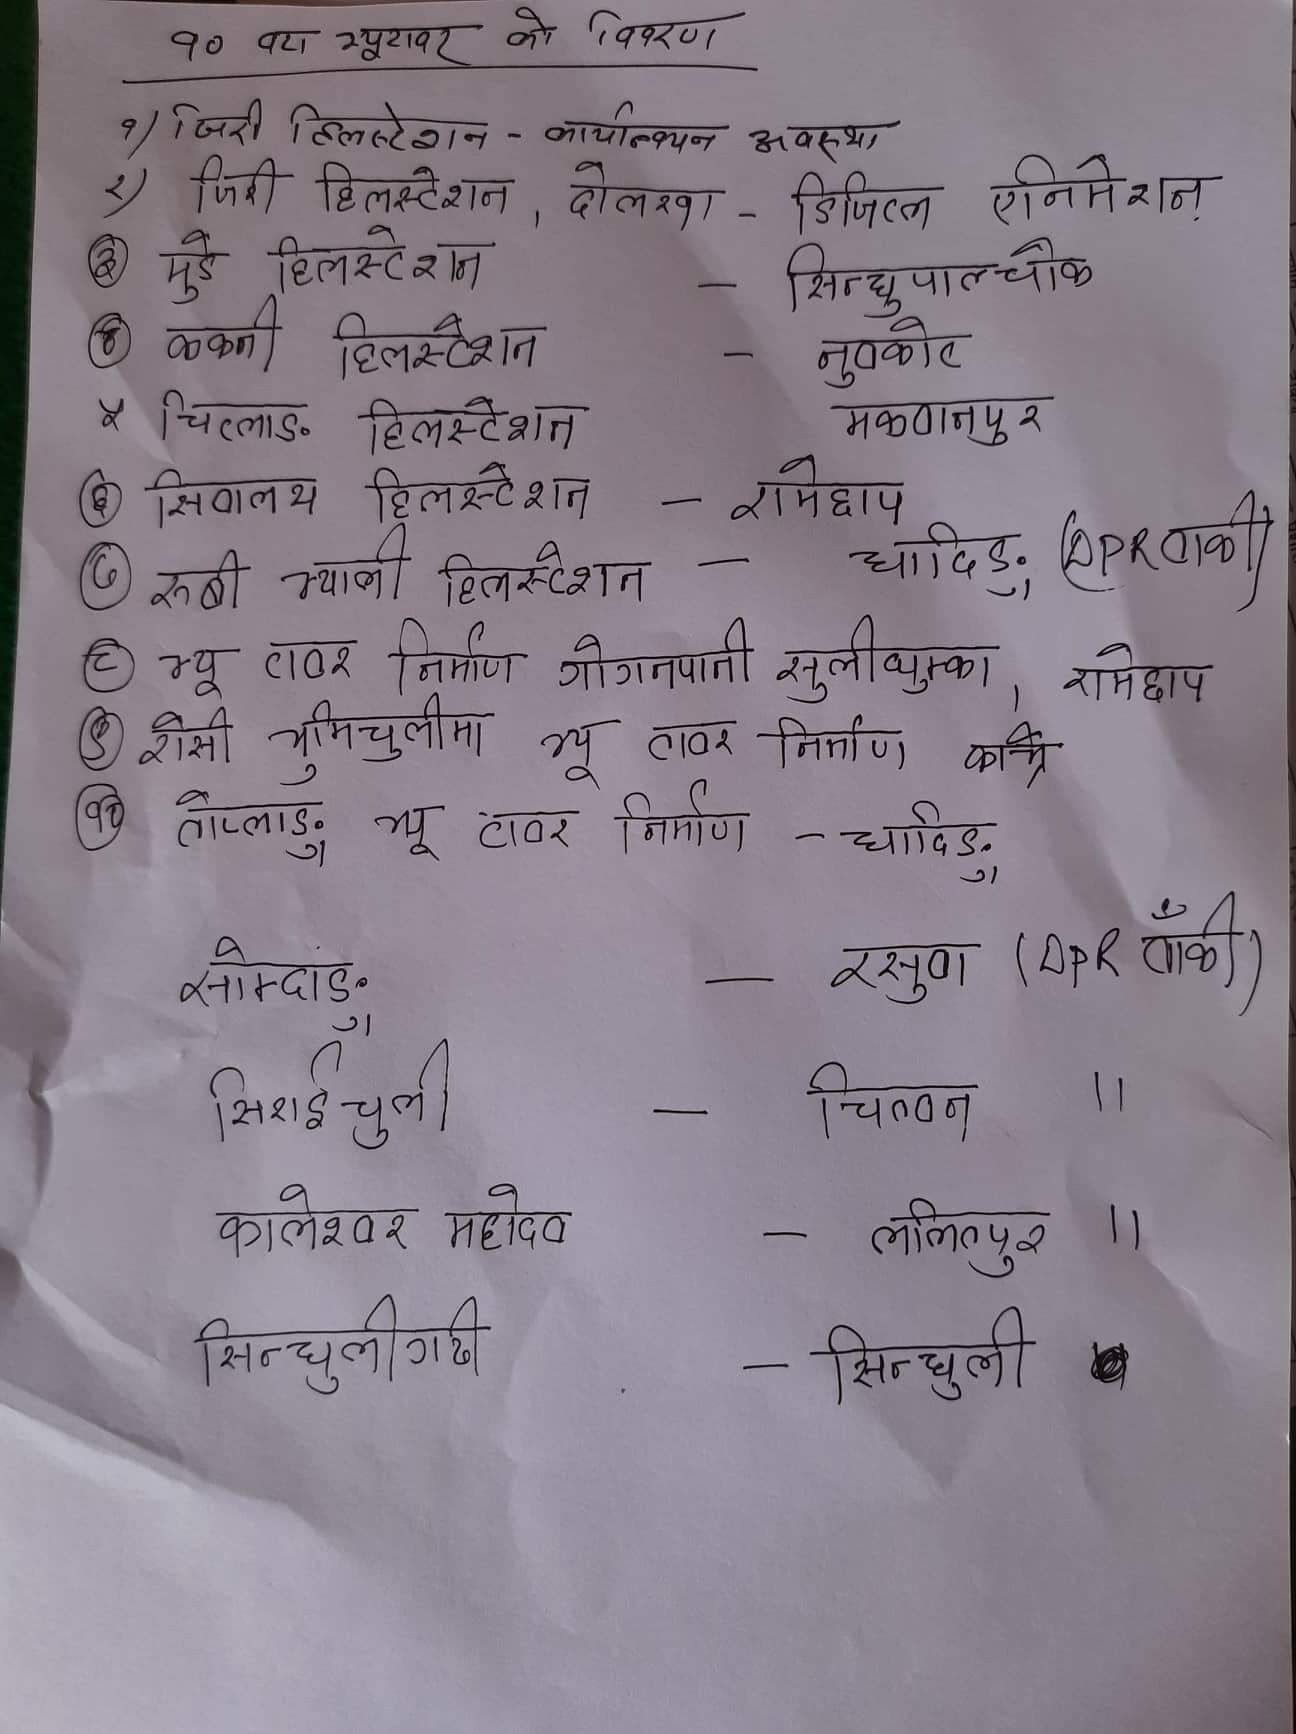 १० वटा भ्यूटावर को विवरण
१) जिरी हिलस्टेशन - कार्यान्वयन अवस्था
२) जिरी हिलस्टेशन, दोलखा - डिजिटल एनिमेशन
३ मुडे हिलस्टेशन - सिन्धुपाल्चौक
४ ककनी हिलस्टेशन - नुवकोट
५ चित्लाङ हिलस्टेशन मकवानपुर
६ सिवालय हिलस्टेशन - रामेछाप
७ रुबी भ्याली हिलस्टेशन - धादिङ्ग (DPR वाकी)
८ भ्यू टावर निर्माण गोगनपानी सुलीथुम्का, रामेछाप
९ रोसी भुमिचुलीमा भ्यू टावर निर्माण काभ्रे
१० तोप्लाङ्ग भ्यू टावर निर्माण - धादिङ्ग
सोमदाङ्ग - रसुवा (DPR वाँकी)
सिराईचुली - चितवन ॥
कालेश्वर महादेव - ललितपुर ॥
सिन्धुलीगढी - सिन्धुली